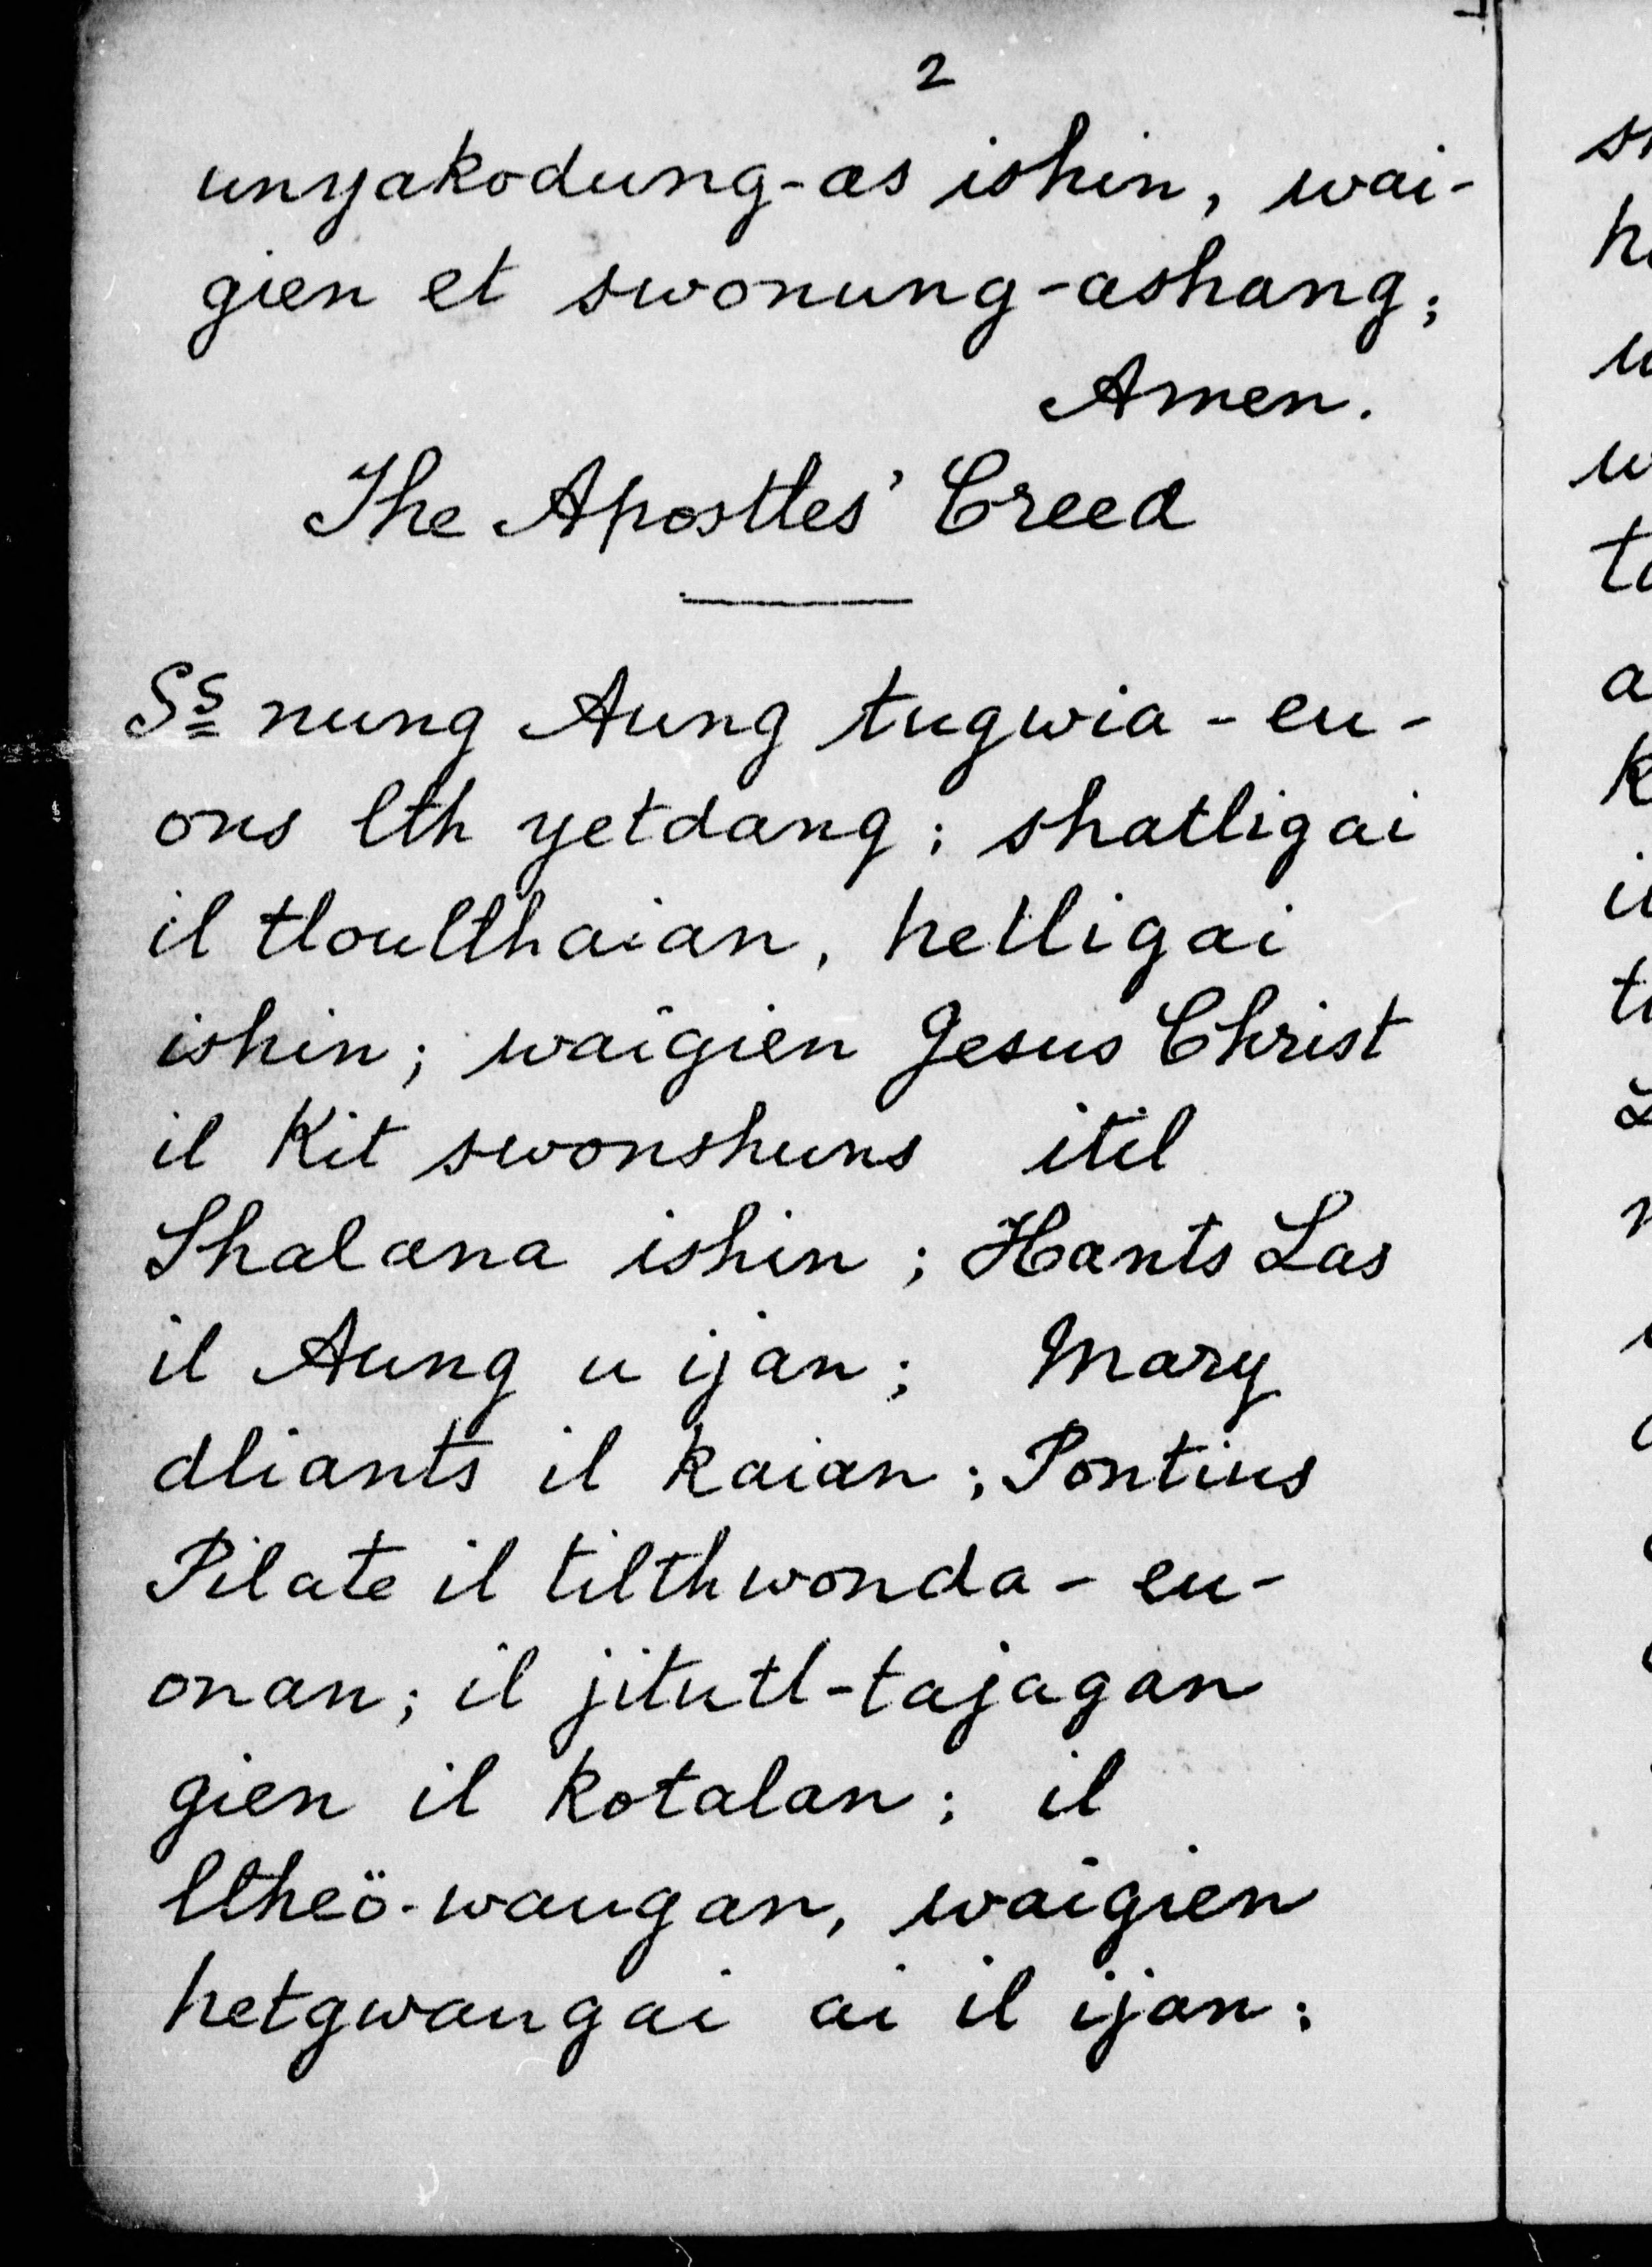 2
unyakodung-as ishin, wai-
gien et swonung-ashang;
Amen.
The Apostles' Creed
Ss nung Aung tugwia-eu-
ons lth yetdang; shatligai
il tloulthaian, hetligai
ishin; waigien Jesus Christ
il Kit swonshuns itil
Shalana ishin; Hants Las
il Aung u ijan; Mary
dliants il kaian; Pontius
Pilate il tilthwonda-eu-
onan; il jitutl-tajagan
gien il kotalan; il
ltheö-waugan, waigien
hetgwaugai ai il ijan;